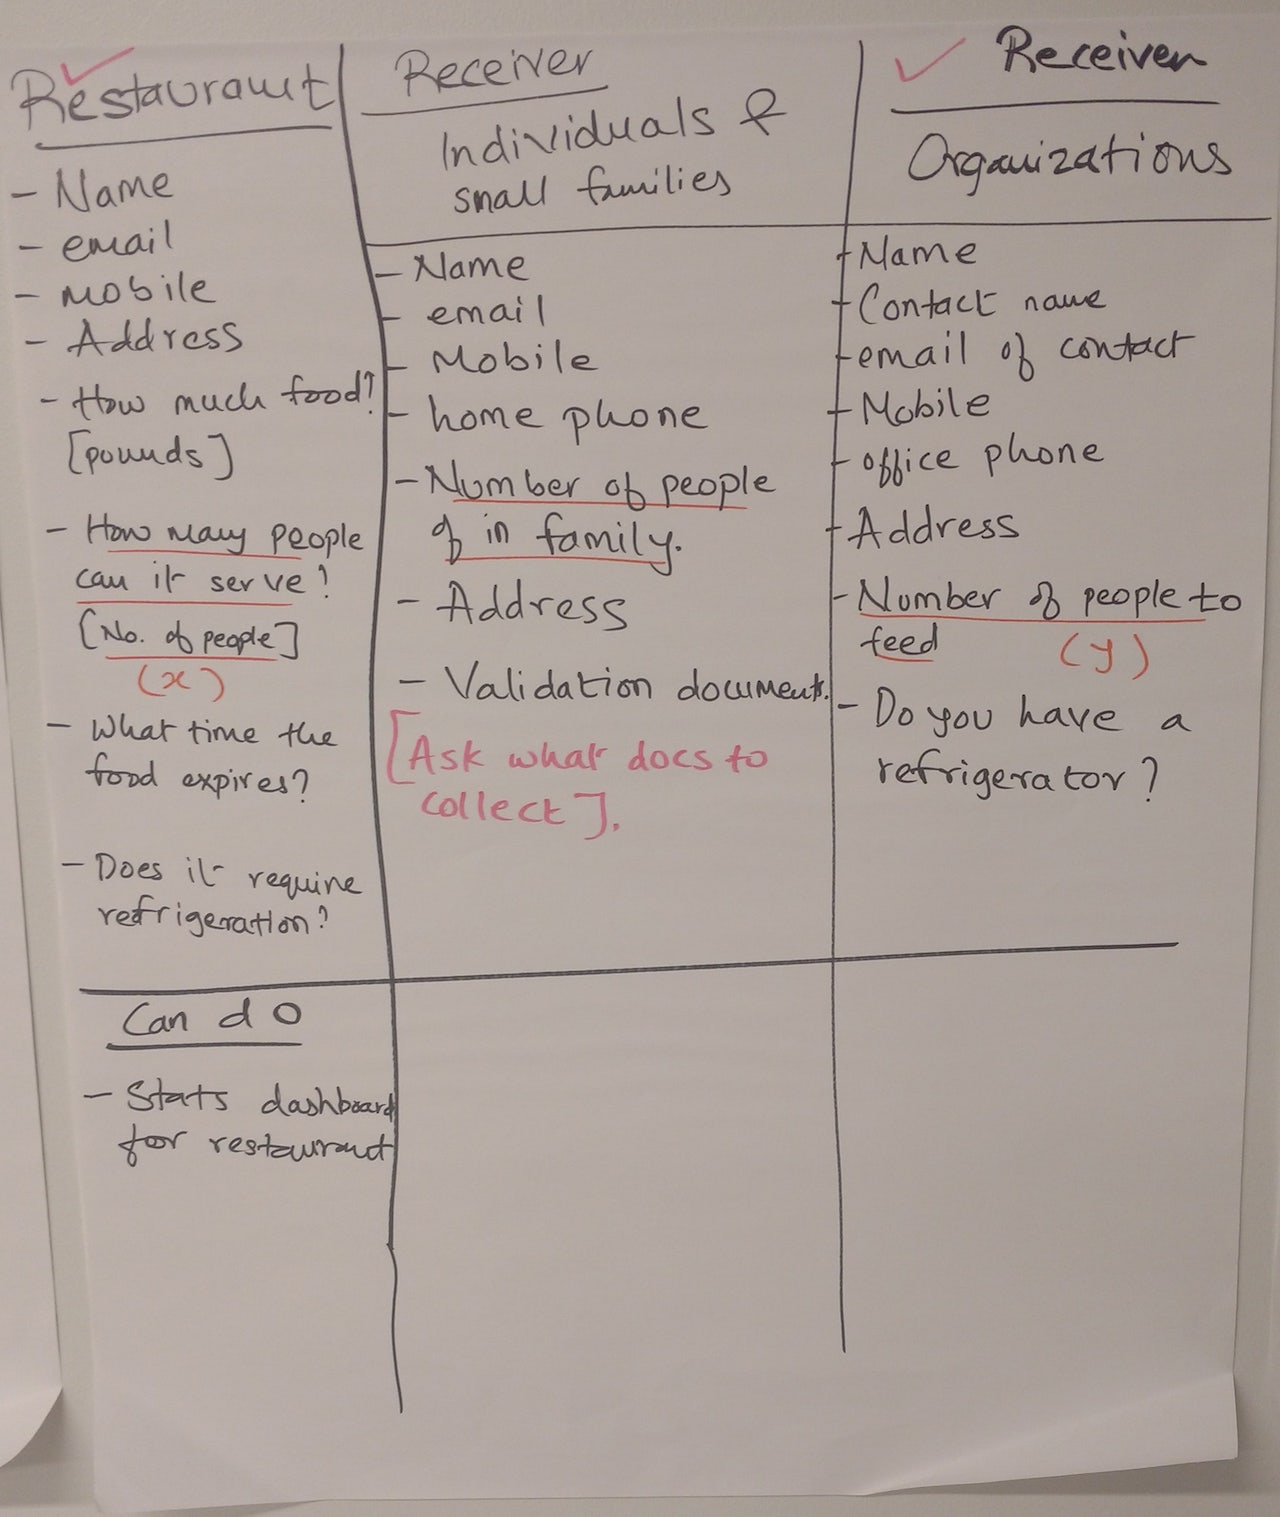 Restaurant
- Name
- email
- Mobile
- Address
- How much food?
[pounds]
- How many people
can it serve?
[No. of people]
(x)
- What time the
food expires?
- Does it require
refrigeration?
Can do
- Stats dashboard
for restaurant
Receiver
Individuals &
small families
- Name
- email
- Mobile
- home phone
- Number of people
of in family.
- Address
- Validation document.
[Ask what docs to
collect].
Receiver
Organizations
- Name
- Contact name
- email of contact
- Mobile
- office phone
- Address
- Number of people to
feed (y)
- Do you have a
refrigerator?